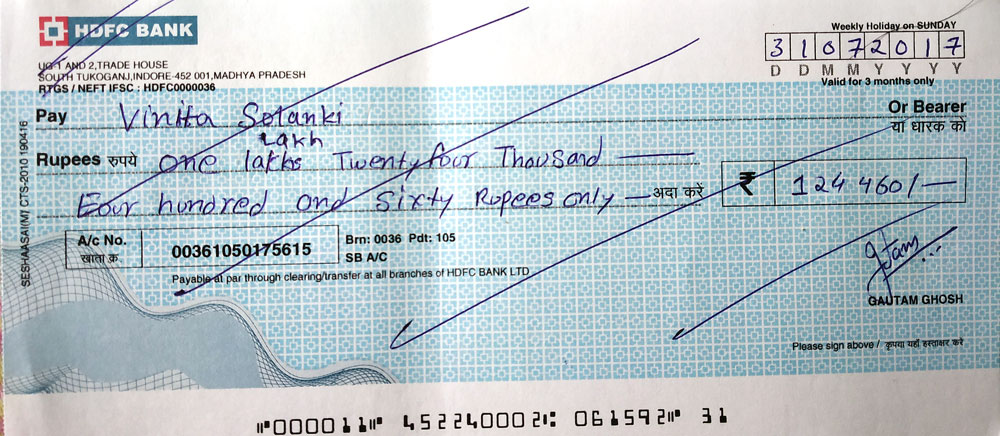 HDFC BANK
UG-1 AND 2,TRADE HOUSE
SOUTH TUKOGANJ,INDORE-452 001,MADHYA PRADESH
RTGS / NEFT IFSC : HDFC0000036
Weekly Holiday on SUNDAY
3 1 0 7 2 0 1 7
D D M M Y Y Y Y
Valid for 3 months only
Pay Vinita Solanki Or Bearer
या धारक को
Lakh
Rupees रुपये One lakhs Twenty four Thousand
Four hundred and Sixty Rupees only अदा करें ₹ 124 460/-
A/c No. 00361050175615 Brn: 0036 Pdt: 105
खाता क्र. SB A/C
Payable at par through clearing/transfer at all branches of HDFC BANK LTD
GAUTAM GHOSH
Please sign above / कृपया यहाँ हस्ताक्षर करें
SESHAASAI(M) CTS-2010 190416
⑈000011⑈ 452240002⑆ 061592⑈ 31